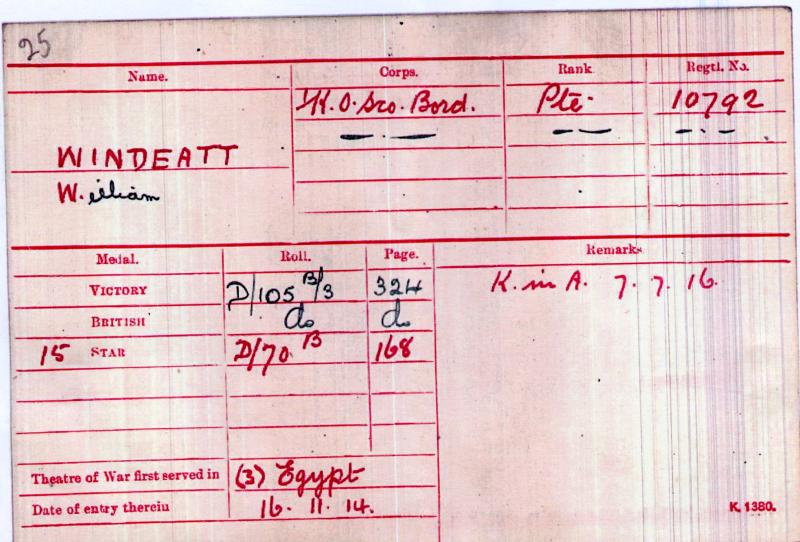 25
Name. Corps. Rank Regtl. No.
K.O.Sco.Bord. Pte. 10792
WINDEATT
William
Medal. Roll. Page. Remarks
VICTORY D/105 B/3 324 K. in A. 7.7.16.
BRITISH do do
15 STAR D/70 B 168
Theatre of War first served in (3) Egypt
Date of entry therein 16.11.14.
K. 1380.